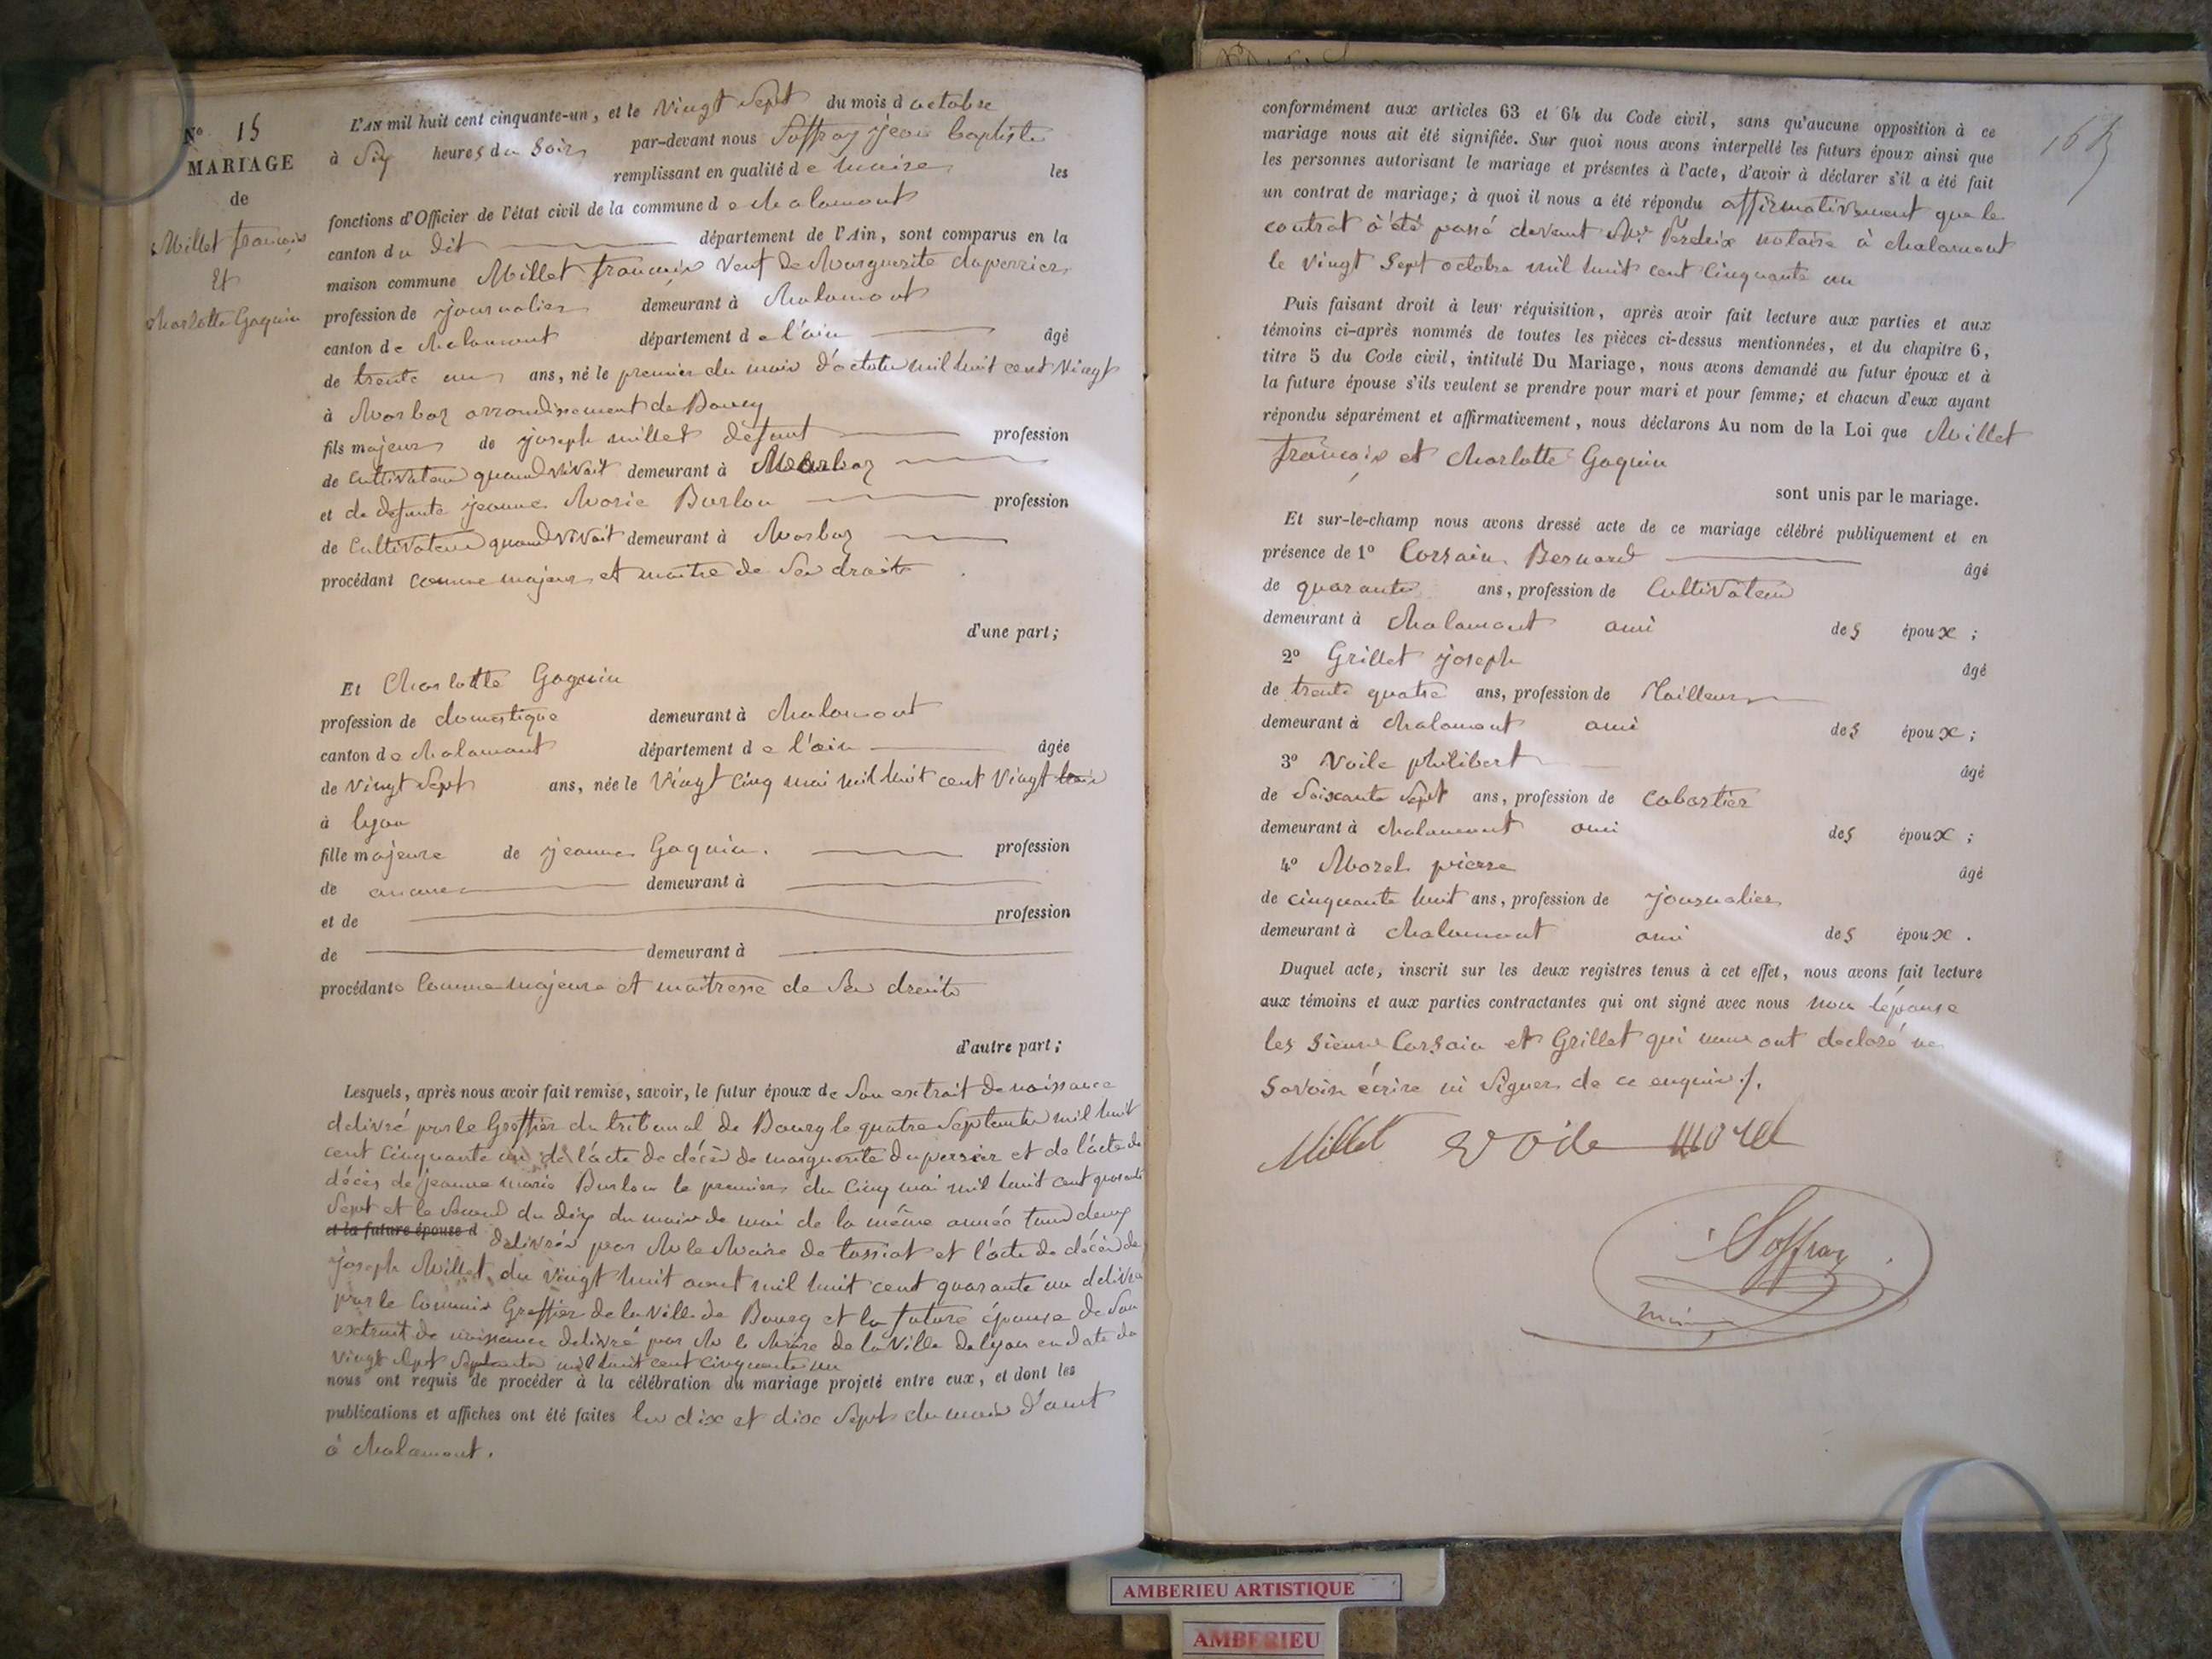 N° 15
MARIAGE
de
Millet françois
Et
charlotte Goquin
L'AN mil huit cent cinquante-un, et le Vingt Sept du mois d octobre
à Six heures du Soir par-devant nous Soffray jean baptiste
remplissant en qualité de maire les
fonctions d'Officier de l'état civil de la commune de chalamont
canton du dit département de l'Ain, sont comparus en la
maison commune Millet françois Veuf de Marguerite duperrier
profession de journalier demeurant à chalamont
canton de chalamont département de l'ain âgé
de trente un ans, né le premier du mois d'octobre mil huit cent Vingt
à Marboz arrondissement de Bourg
fils majeur de joseph millet défunt profession
de Cultivateur quand vivait demeurant à Marboz
et de defunte jeanne Marie Burlon profession
de Cultivateur quand vivait demeurant à Marboz
procédant comme majeur et maitre de Ses droits
d'une part;
Et Charlotte Goquin
profession de domestique demeurant à chalamont
canton de chalamont département de l'ain âgée
de Vingt Sept ans, née le Vingt Cinq mai mil huit cent Vingt
à lyon
fille majeure de jeanne Goquin. profession
de demeurant à
et de profession
de demeurant à
procédante Comme majeure et maitresse de Ses droits
d'autre part;
Lesquels, après nous avoir fait remise, savoir, le futur époux de Son extrait de naissance
delivré par le Greffier du tribunal de Bourg le quatre Septembre mil huit
cent Cinquante un de l'acte de décès de marguerite duperrier et de l'acte de
décès de jeanne marie Burlon le premier du Cinq mai mil huit cent quarante
Sept et le Second du dix du mois de mai de la même année tous deux
et la future épouse d delivrés par M le Maire de tossiat et l'acte de décès de
joseph Millet du Vingt huit aout mil huit cent quarante un delivré
par le Commis Greffier de la Ville de Bourg et la future épouse de Son
extrait de naissance delivré par M le Maire de la Ville de lyon en date du
Vingt Sept Septembre mil huit cent Cinquante un
nous ont requis de procéder à la célébration du mariage projeté entre eux, et dont les
publications et affiches ont été faites les dix et dix Sept du mois d'aout
à chalamont.
conformément aux articles 63 et 64 du Code civil, sans qu'aucune opposition à ce
mariage nous ait été signifiée. Sur quoi nous avons interpellé les futurs époux ainsi que
les personnes autorisant le mariage et présentes à l'acte, d'avoir à déclarer s'il a été fait
un contrat de mariage; à quoi il nous a été répondu affirmativement que le
contrat à été passé devant Me Perdrix notaire à chalamont
le Vingt Sept octobre mil huit cent Cinquante un
Puis faisant droit à leur réquisition, après avoir fait lecture aux parties et aux
témoins ci-après nommés de toutes les pièces ci-dessus mentionnées, et du chapitre 6,
titre 5 du Code civil, intitulé Du Mariage, nous avons demandé au futur époux et à
la future épouse s'ils veulent se prendre pour mari et pour femme; et chacun d'eux ayant
répondu séparément et affirmativement, nous déclarons Au nom de la Loi que Millet
françois et charlotte Goquin
sont unis par le mariage.
Et sur-le-champ nous avons dressé acte de ce mariage célébré publiquement et en
présence de 1° Corsain Bernard âgé
de quarante ans, profession de Cultivateur
demeurant à chalamont ami des époux;
2° Grillet joseph âgé
de trente quatre ans, profession de Tailleur
demeurant à chalamont ami des époux;
3° Voile philibert âgé
de Soixante Sept ans, profession de cabartier
demeurant à chalamont ami des époux;
4° Morel pierre âgé
de cinquante huit ans, profession de journalier
demeurant à chalamont ami des époux.
Duquel acte, inscrit sur les deux registres tenus à cet effet, nous avons fait lecture
aux témoins et aux parties contractantes qui ont signé avec nous non l'épouse
les Sieurs Corsain et Grillet qui nous ont declaré ne
Savoir écrire ni Signer de ce enquis /.
Millet Voile morel
Soffray
maire
AMBERIEU ARTISTIQUE
AMBERIEU